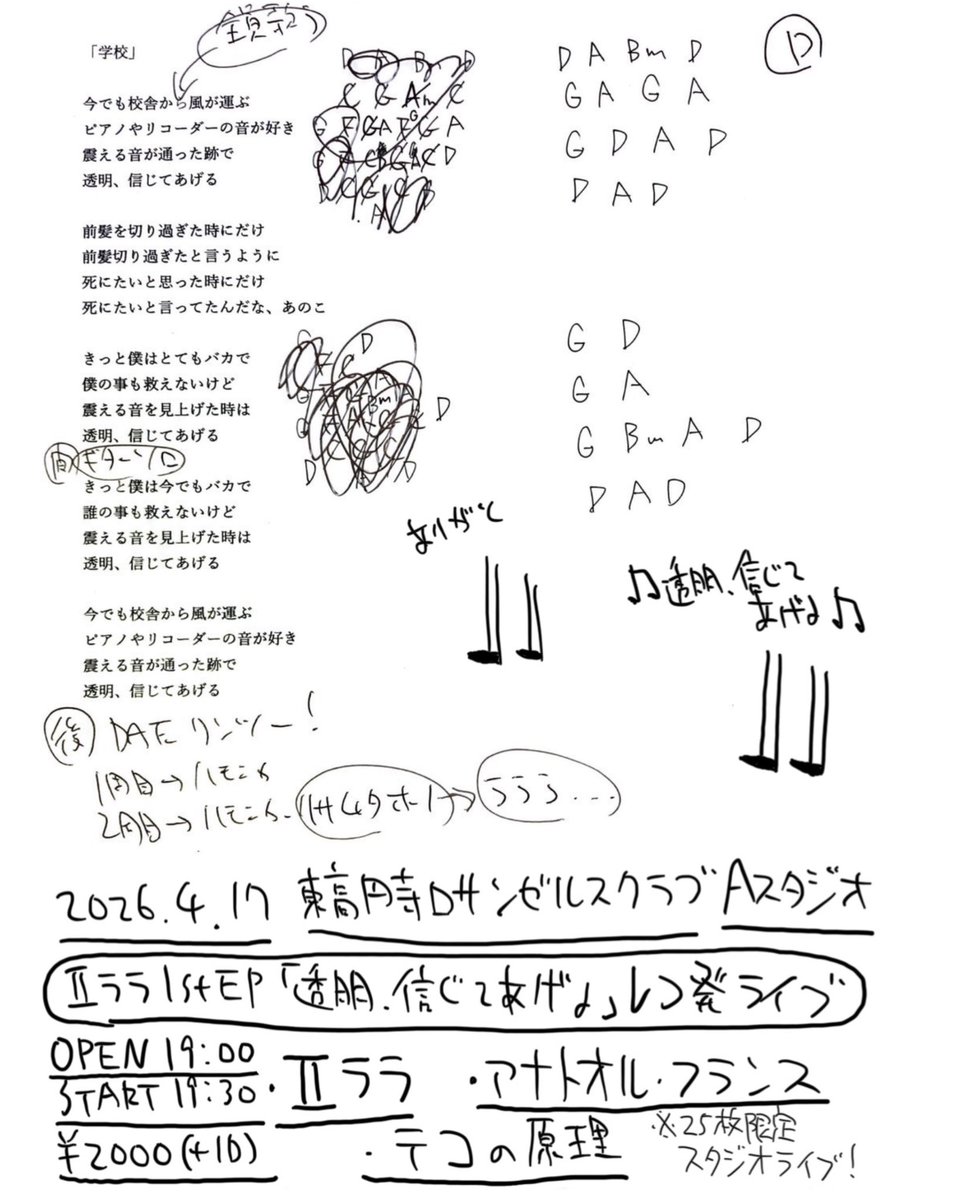 「学校」
今でも校舎から風が運ぶ
ピアノやリコーダーの音が好き
震える音が通った跡で
透明、信じてあげる
前髪を切り過ぎた時にだけ
前髪切り過ぎたと言うように
死にたいと思った時にだけ
死にたいと言ってたんだな、あのこ
きっと僕はとてもバカで
僕の事も救えないけど
震える音を見上げた時は
透明、信じてあげる
間 ギターソロ
きっと僕は今でもバカで
誰の事も救えないけど
震える音を見上げた時は
透明、信じてあげる
今でも校舎から風が運ぶ
ピアノやリコーダーの音が好き
震える音が通った跡で
透明、信じてあげる
D
D A Bm D
G A G A
G D A D
D A D
G D
G A
G Bm A D
D A D
ありがと
♫透明、信じて
あげる♫
後
1周目→ハモニカ
2周目→ハモニカ
ララララ...
2026.4.17 東高円寺ロサンゼルスクラブ Aスタジオ
IIララ 1st EP「透明、信じてあげる」レコ発ライブ
OPEN 19:00
START 19:30
¥2000(+1D)
・IIララ ・アナトオル・フランス
・テコの原理
※25枚限定
スタジオライブ!